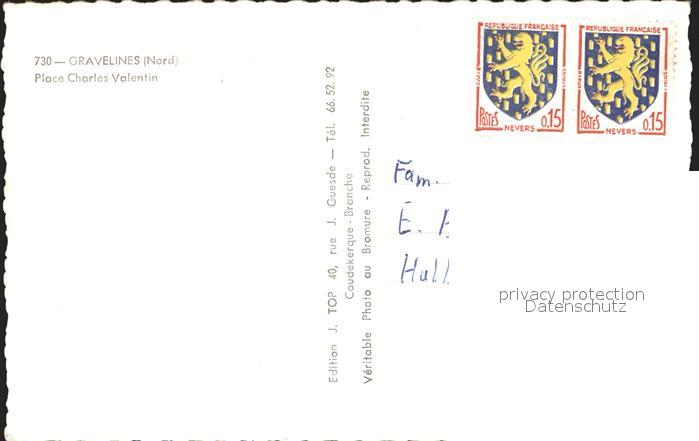 730 — GRAVELINES (Nord)
Place Charles Valentin
Edition J. TOP 40, rue J. Guesde — Tél. 66.52.92
Coudekerque-Branche
Véritable Photo au Bromure - Reprod. Interdite
REPUBLIQUE FRANÇAISE
POSTES 0,15
NEVERS
REPUBLIQUE FRANÇAISE
POSTES 0,15
NEVERS
Fam.
E.
privacy protection
Datenschutz